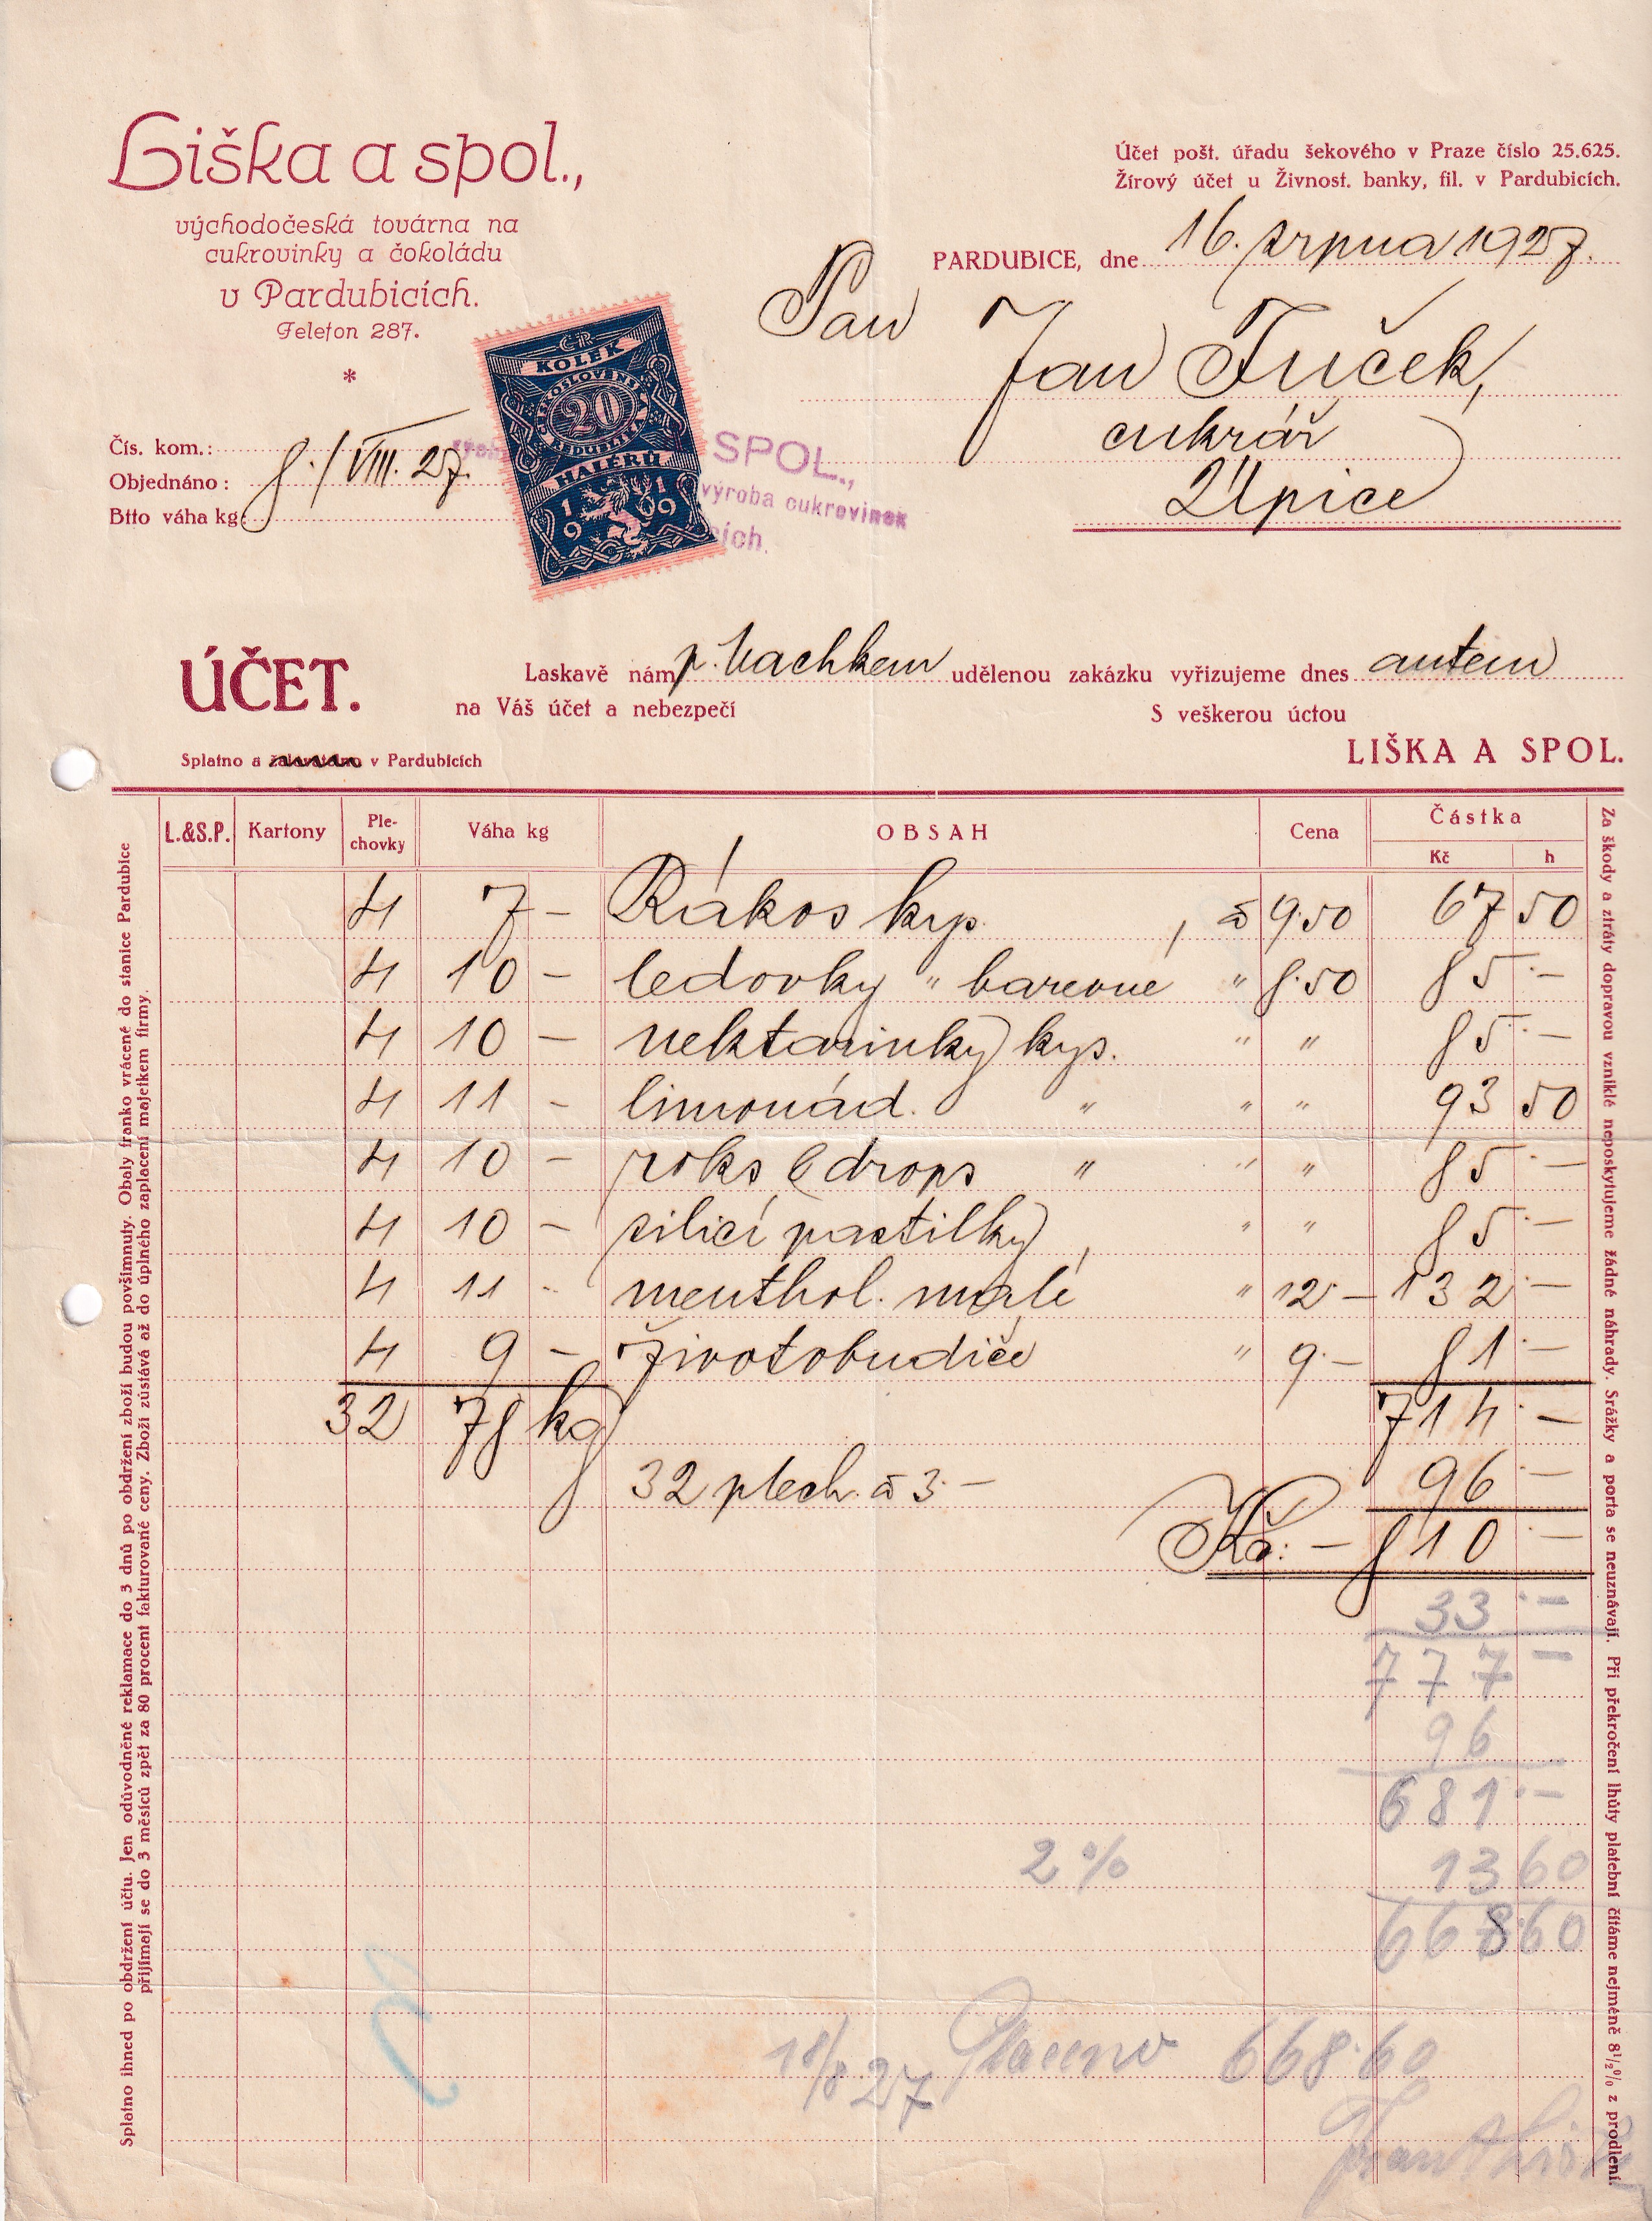 Liška a spol.,
východočeská továrna na
cukrovinky a čokoládu
v Pardubicích.
Telefon 287.
*
Účet pošt. úřadu šekového v Praze číslo 25.625.
Žírový účet u Živnost. banky, fil. v Pardubicích.
PARDUBICE, dne 16. srpna 1927.
Pan Jan Tuček,
cukrář
Úpice
Čís. kom.:
Objednáno: 8./VIII. 27.
Btto váha kg:
ČR
KOLEK
ČESKOSLOVENSKÁ
20
REPUBLIKA
HALÉŘŮ
1919
SPOL.,
výroba cukrovinek
cích.
ÚČET.
Laskavě nám p. Vachkem udělenou zakázku vyřizujeme dnes autem
na Váš účet a nebezpečí
S veškerou úctou
LIŠKA A SPOL.
Splatno a v Pardubicích
L.&S.P. Kartony Plechovky Váha kg OBSAH Cena Částka
Kč h
4 7 – Rákos kys. , à 9·50 67 50
4 10 – ledovky " barevné " 8·50 85·–
4 10 – nektarinky kys. " " 85·–
4 11 – limonád. " " " 93 50
4 10 – roks & drops " " " 85·–
4 10 – silicí pastilky, " " 85·–
4 11 – menthol. malé " 12·– 132·–
4 9 – životobudiče " 9·– 81·–
32 78 kg 714·–
32 plech. à 3·– 96·–
Kč: – 810·–
33·–
777–
96
681·–
2% 13 60
668 60
18/8 27 Placeno 668·60
Splatno ihned po obdržení účtu. Jen odůvodněné reklamace do 3 dnů po obdržení zboží budou povšimnuty. Obaly franko vrácené do stanice Pardubice
přijímají se do 3 měsíců zpět za 80 procent fakturované ceny. Zboží zůstává až do úplného zaplacení majetkem firmy.
Za škody a ztráty dopravou vzniklé neposkytujeme žádné náhrady. Srážky a porta se neuznávají. Při překročení lhůty platební čítáme nejméně 8½% z prodlení.